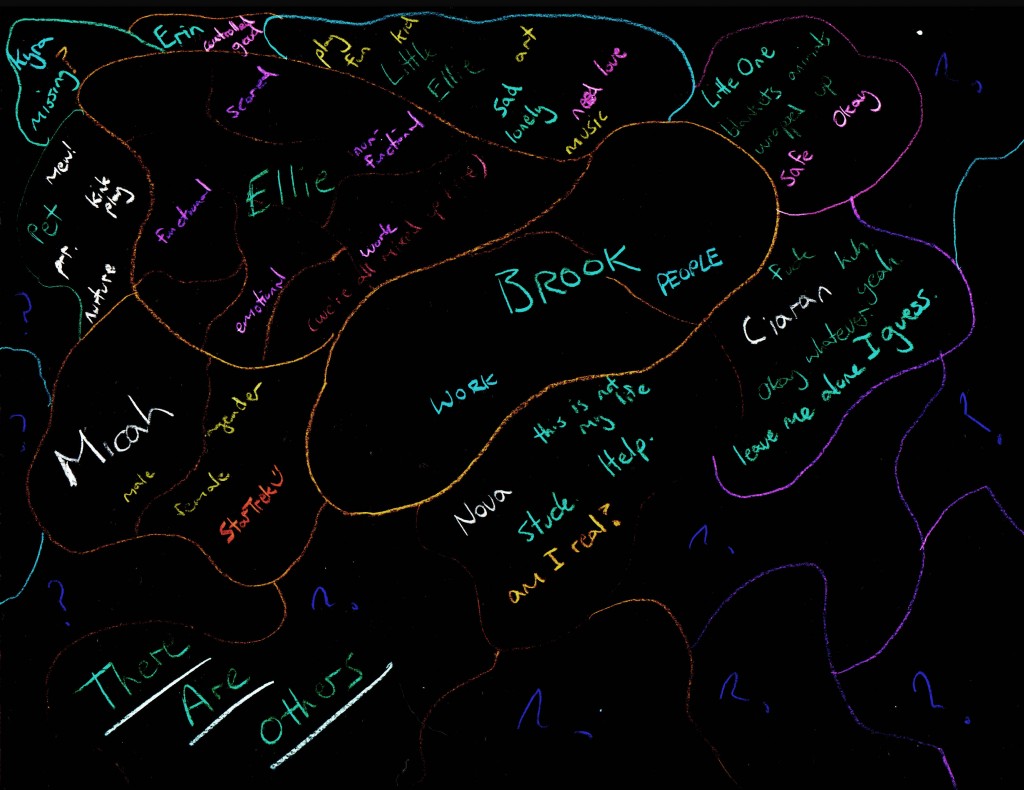 Kyra
?
missing
Erin
controlled
good
play
fun
kid
Little
Ellie
art
sad
lonely
need love
music
Little One
blankets animals
wrapped up
Okay
safe
?
scared
non-
functional
Ellie
functional
work
(we're all mixed up here)
emotional
mew!
kink
play
Pet
nurture
BROOK
PEOPLE
WORK
fuck
huh
Ciaran
okay whatever yeah.
leave me alone I guess.
?
?
?
Micah
agender
male
female
StarTrek :)
this is not
my life
Help.
Nova
stuck.
am I real?
?
?
?
There
Are
others
?
?
?